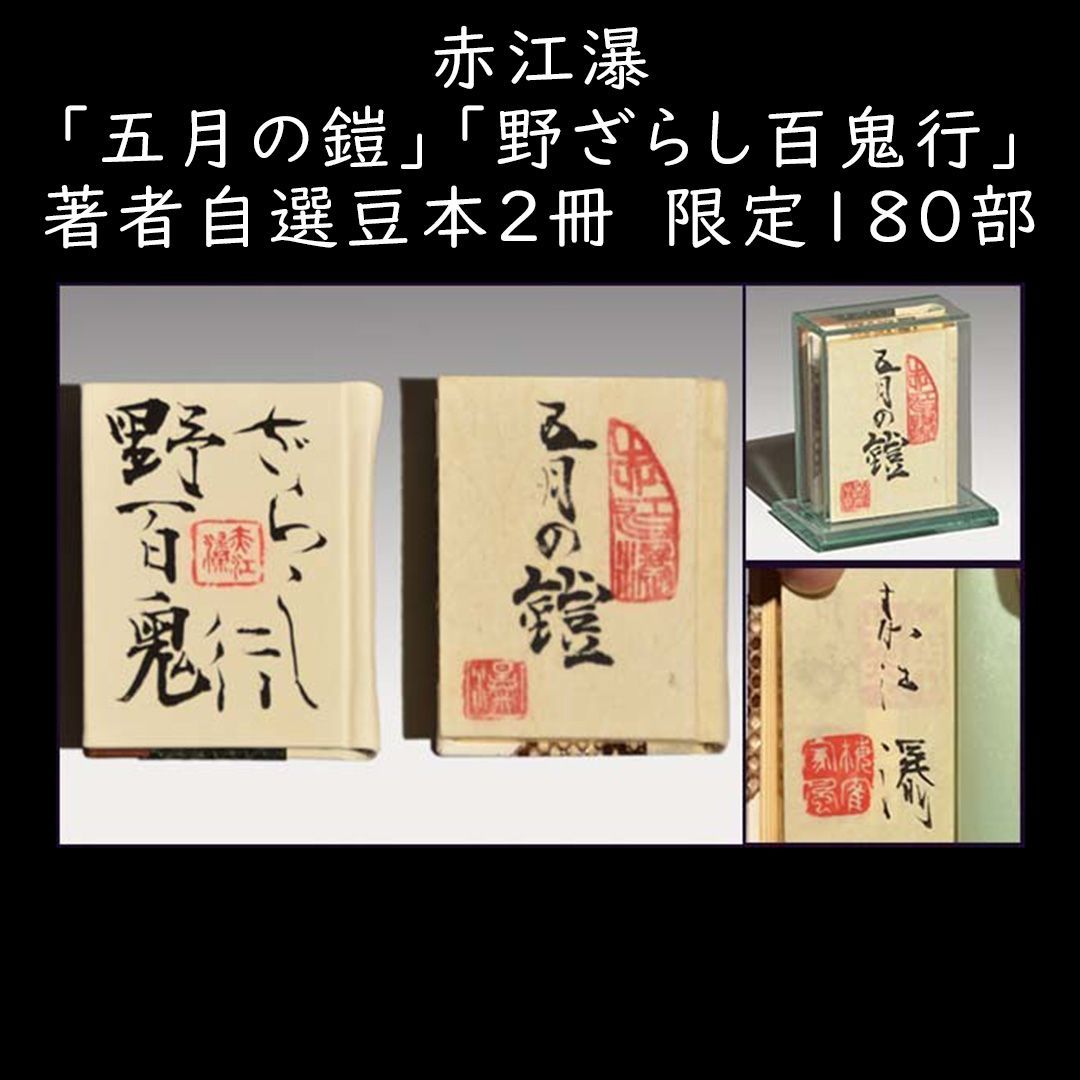 赤江瀑
「五月の鎧」「野ざらし百鬼行」
著者自選豆本2冊 限定180部
野ざらし
百鬼行
赤江
瀑
五月の鎧
赤江瀑
五月の鎧
赤江瀑
瀑